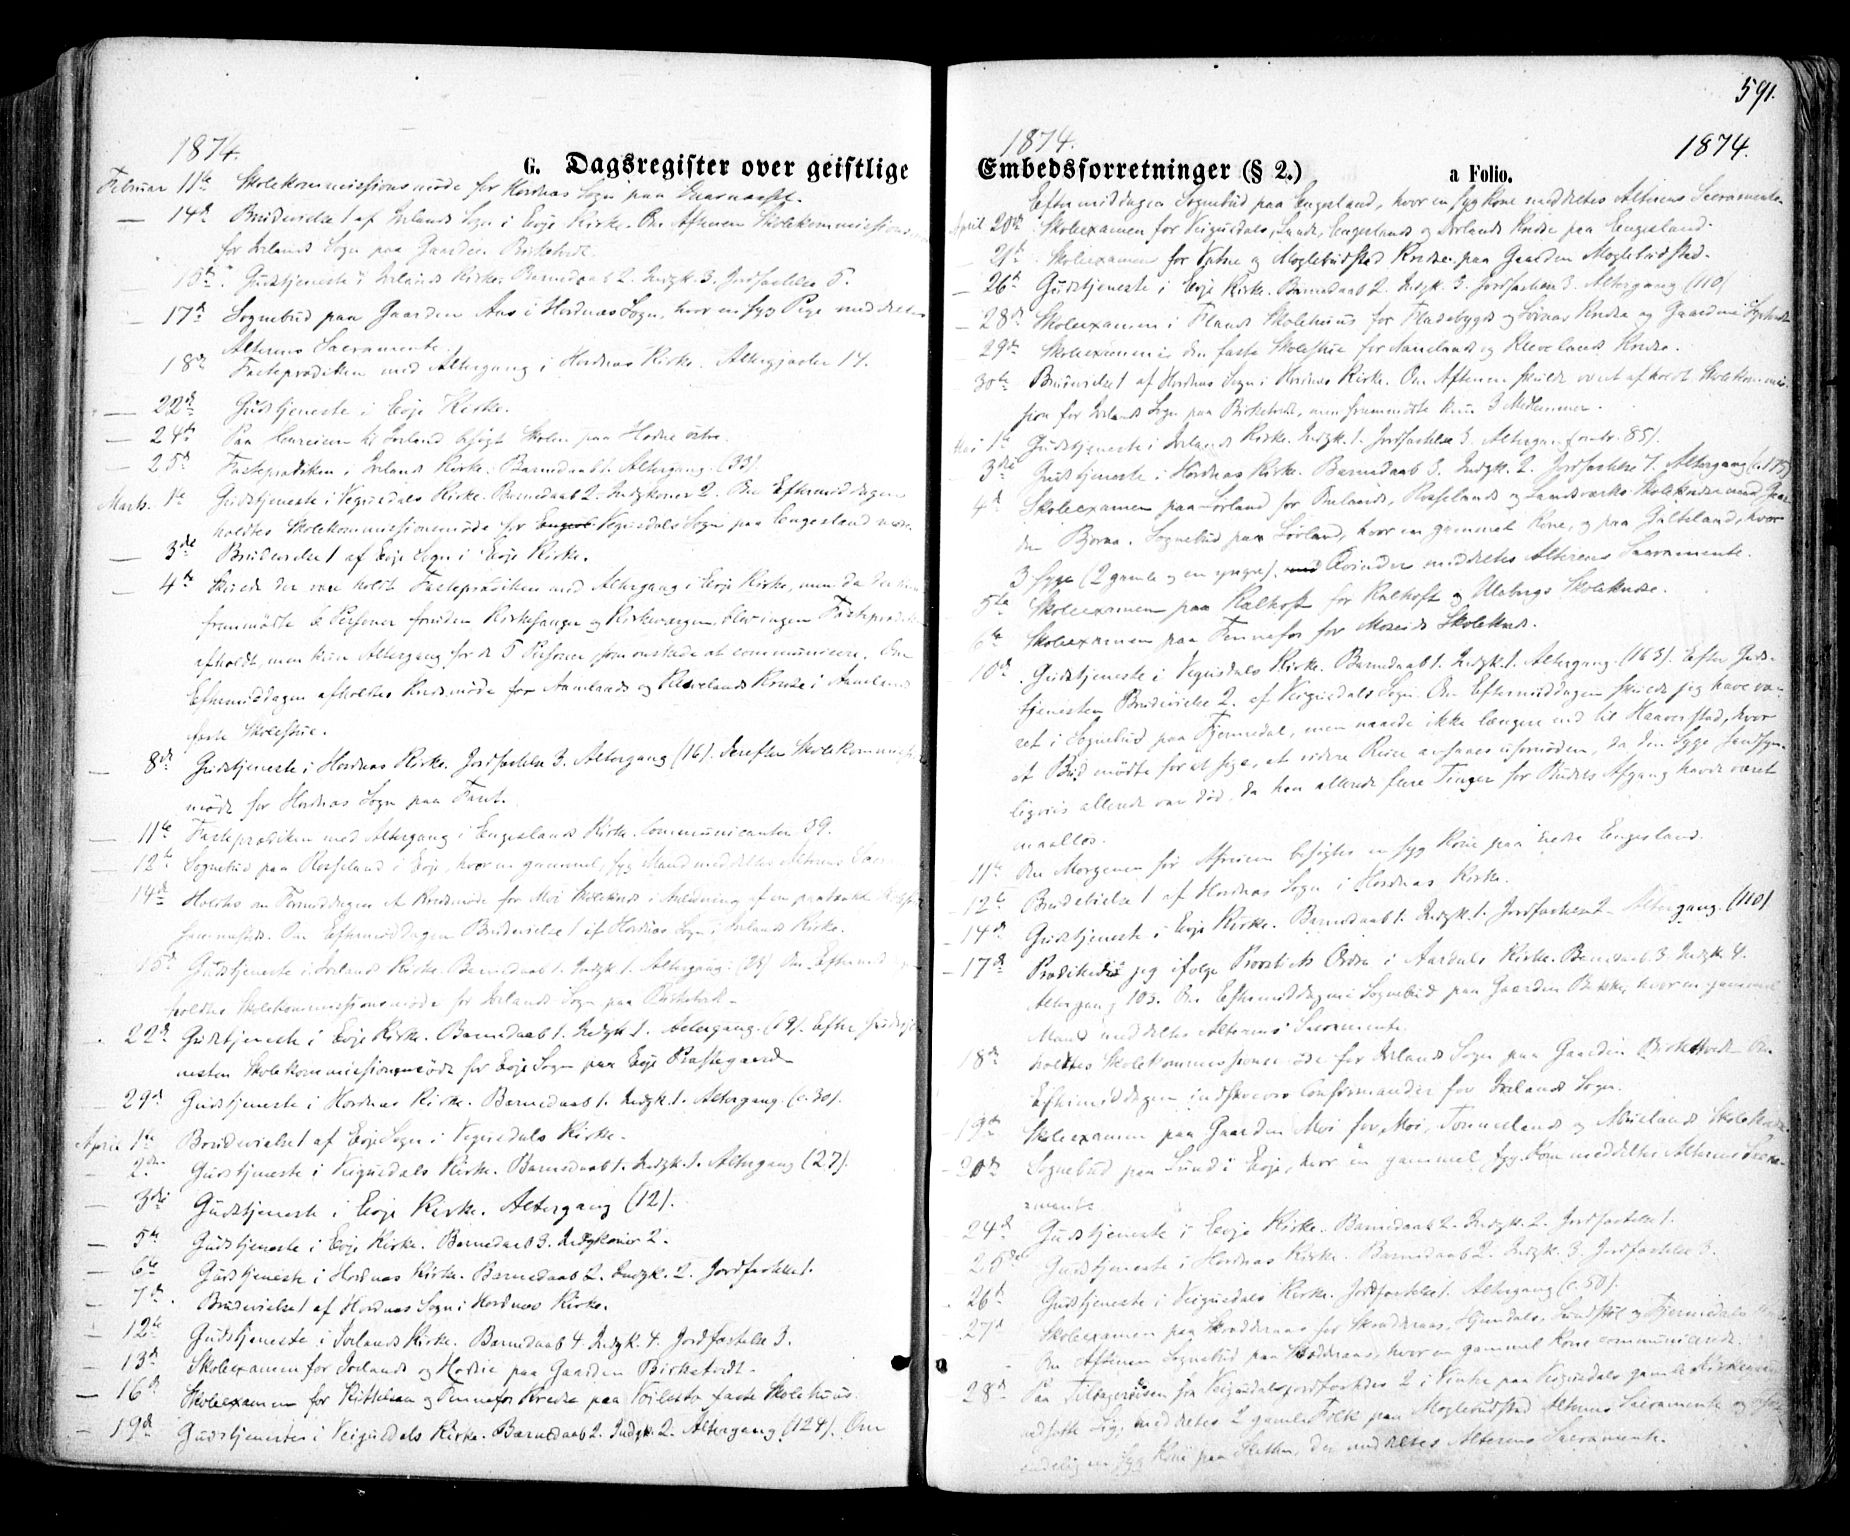 1874.
G. Dagsregister over geistlige
Februar 11te Skolekommissionsmøde for Hordnæs Sogn paa
— 14de Brudevielse 1 af Iveland Sogn i Evje Kirke. Om Aftenen Skolekommissions
for Ivelands Sogn paa Gaarden Birketvedt.
15de Gudstjeneste i Ivelands Kirke. Barnedaab 2. Indgk. 3. Jordfæstelse 5.
— 17de Sognebud paa Gaarden Aas i Hordnæs Sogn, hvor en syg Pige meddeltes
Alterens Sacramente.
— 18de Fasteprædiken med Altergang i Hordnæs Kirke. Altergjæster 14.
— 22de Gudstjeneste i Evje Kirke.
— 24de Paa Henreisen til Iveland besøgt Skolen paa
— 25de Fasteprædiken i Ivelands Kirke. Barnedaab 1. Altergang. (33).
Marts. 1te Gudstjeneste i Vegusdals Kirke. Barnedaab 2. Indgkoner 2. Om Eftermiddagen
holdtes Skolekommissionsmøde for Vegusdals Sogn paa Engesland
— 3de Brudevielse 1 af Evje Sogn i Evje Kirke.
— 4de Skulde der være holdt Fasteprædiken med Altergang i Evje Kirke, men da der kun
fremmødte 6 Personer foruden Kirkesanger og Kirkeværgen, blev ingen Fasteprædiken
afholdt, men kun Altergang for de 5 Personer som ønskede at communicere. Om
Eftermiddagen afholdtes Kredsmøde for Aamlands og Klevelands Kredse i Aamlands
faste Skolestue.
— 8de Gudstjeneste i Hordnæs Kirke. Jordfæstelse 3. Altergang (16). Derefter Skolekommissions
møde for Hordnæs Sogn paa
— 11te Fasteprædiken med Altergang i Engeslands Kirke. Communicanter 39.
— 12te Sognebud paa Rosseland i Evje, hvor en gammel, syg Mand meddeltes Alterens
14de Holdtes om Formiddagen et Kredsmøde for Moi Skolekreds i Anledning af en paatænkt
Om Eftermiddagen Brudevielse 1 af Hordnæs Sogn i Ivelands Kirke.
15de Gudstjeneste i Ivelands Kirke. Barnedaab 1. Indgk. 1. Altergang. (28) Om Eftermiddagen
holdtes Skolekommissionsmøde for Ivelands Sogn paa Birketvedt.
22de Gudstjeneste i Evje Kirke. Barnedaab 1. Indgk. 1. Altergang. (19). Efter Gudstje
nesten Skolekommissionsmøde for Evje Sogn paa Evje Præstegaard
— 29de Gudstjeneste i Hordnæs Kirke. Barnedaab 1. Indgk. 1. Altergang. (c. 30).
April 1te Brudevielse 1 af Evje Sogn i Vegusdals Kirke.
— 2den Gudstjeneste i Vegusdals Kirke. Barnedaab 1. Indgk. 1. Altergang (27).
— 3die Gudstjeneste i Evje Kirke. Altergang (12).
— 5te Gudstjeneste i Evje Kirke. Barnedaab 3. Indgkoner 2.
— 6te Gudstjeneste i Hordnæs Kirke. Barnedaab 2. Indgk. 2. Jordfæstelse 1.
— 7de Brudevielse 1 af Hordnæs Sogn i Hordnæs Kirke.
— 12te Gudstjeneste i Ivelands Kirke. Barnedaab 4. Indgk. 4. Jordfæstelse 3.
— 13de Skoleexamen for Ivelands og paa Gaarden Birketvedt.
— 16de Skoleexamen for og Fennefos Kredse paa faste Skolehuus.
— 19de Gudstjeneste i Veigusdals Kirke. Barnedaab 2. Indgk. 2. Altergang (124). Om
591.
1874. 1874.
Embedsforretninger (§ 2.) a Folio.
Eftermiddagen Sognebud paa Engesland, hvor en syg Kone meddeltes Alterens Sacramente.
April 20de Skoleexamen for Veigusdals, Lands, Engeslands og Kredse paa Engesland.
— 21de Skoleexamen for og Moglebustad Kredse paa Gaarden Moglebustad.
— 26de Gudstjeneste i Evje Kirke. Barnedaab 2. Indgk. 3. Jordfæstelse 3. Altergang (110)
— 28de Skoleexamen i Flands Skolehuus for Kredse og Gaarden
— 29de Skoleexamen i den faste Skolestue for Aamlands og Klevelands Kredse.
30te Brudevielse 1 af Hordnæs Sogn i Hordnæs Kirke. Om Aftenen skulde været afholdt Skolekommis-
sion for Ivelands Sogn paa Birketvedt, men fremmødte kun 3 Medlemmer.
Mai 1te Gudstjeneste i Ivelands Kirke. Indgk. 1. Jordfæstelse 3. Altergang (omtr. 85).
— 3die Gudstjeneste i Hordnæs Kirke. Barnedaab 3. Indgk. 2. Jordfæstelse 7. Altergang
4de Skoleexamen paa for Rosselands og Landsværks Skolekredse med
den Sognebud paa hvor en gammel Kone, og paa Galteland, hvor
3 syge (2 gamle og en yngre) Kvinder meddeltes Alterens Sacramente.
5te Skoleexamen paa Kalhoft for Kalhoft og Skolekredse.
6te Skoleexamen paa Fennefos for Moseids Skolekreds.
10de Gudstjeneste i Vegusdals Kirke. Barnedaab 1. Indgk. 1. Altergang. (163). Efter Guds-
tjenesten Brudevielse 2 af Veigusdals Sogn. Om Eftermiddagen skulde jeg have væ-
ret i Sognebud paa Fjermedal, men naaede ikke længere end til Haaverstad, hvor
et Bud mødte for at sige, at videre Reise ansaaes ufornøden, da den Syge sandsyn-
ligviis allerede var død, da han allerede flere Timer før Budets Afgang havde været
maalløs.
11te Om Morgenen før Afreisen besøgtes en syg Kone paa nedre Engesland.
— 12te Brudevielse 1 af Hordnæs Sogn i Hordnæs Kirke.
— 14de Gudstjeneste i Evje Kirke. Barnedaab 1. Indgk. 1. Jordfæstelse 2. Altergang. (110)
— 17de Prædikede jeg ifølge Provstiets Ordre i Aardals Kirke. Barnedaab 3. Indgk. 4.
Altergang 103. Om Eftermiddagen i Sognebud paa Gaarden hvor en gammel
Mand meddeltes Alterens Sacramente.
18de holdtes Skolekommissionsmøde for Ivelands Sogn paa Gaarden Birketvedt. Om
Eftermiddagen indskreves Confirmander for Ivelands Sogn.
— 19de Skoleexamen paa Gaarden Moi for Moi, og Skolekredse
— 20de Sognebud paa i Evje, hvor en gammel, syg Kone meddeltes Alterens Sacra-
mente
24de Gudstjeneste i Evje Kirke. Barnedaab 2. Indgk. 2. Jordfæstelse 1.
25de Gudstjeneste i Hordnæs Kirke. Barnedaab 2. Indgk. 3. Jordfæstelse 3.
26de Gudstjeneste i Veigusdals Kirke. Jordfæstelse 1. Altergang (c. 50).
27de Skoleexamen paa for og Fjermedals
Om Aftenen Sognebud paa hvor en gammel Kone communicerede.
28de Paa Tilbagereisen fra Veigusdal jordfæstedes 2 Liig paa Veigusdals gamle Kirkegaard
nedsatte Lig, meddeltes 2 gamle Folk paa Moglebustad Alterens Sacramente og
endelig en syg Kone paa der meddeltes Alterens Sacramente.